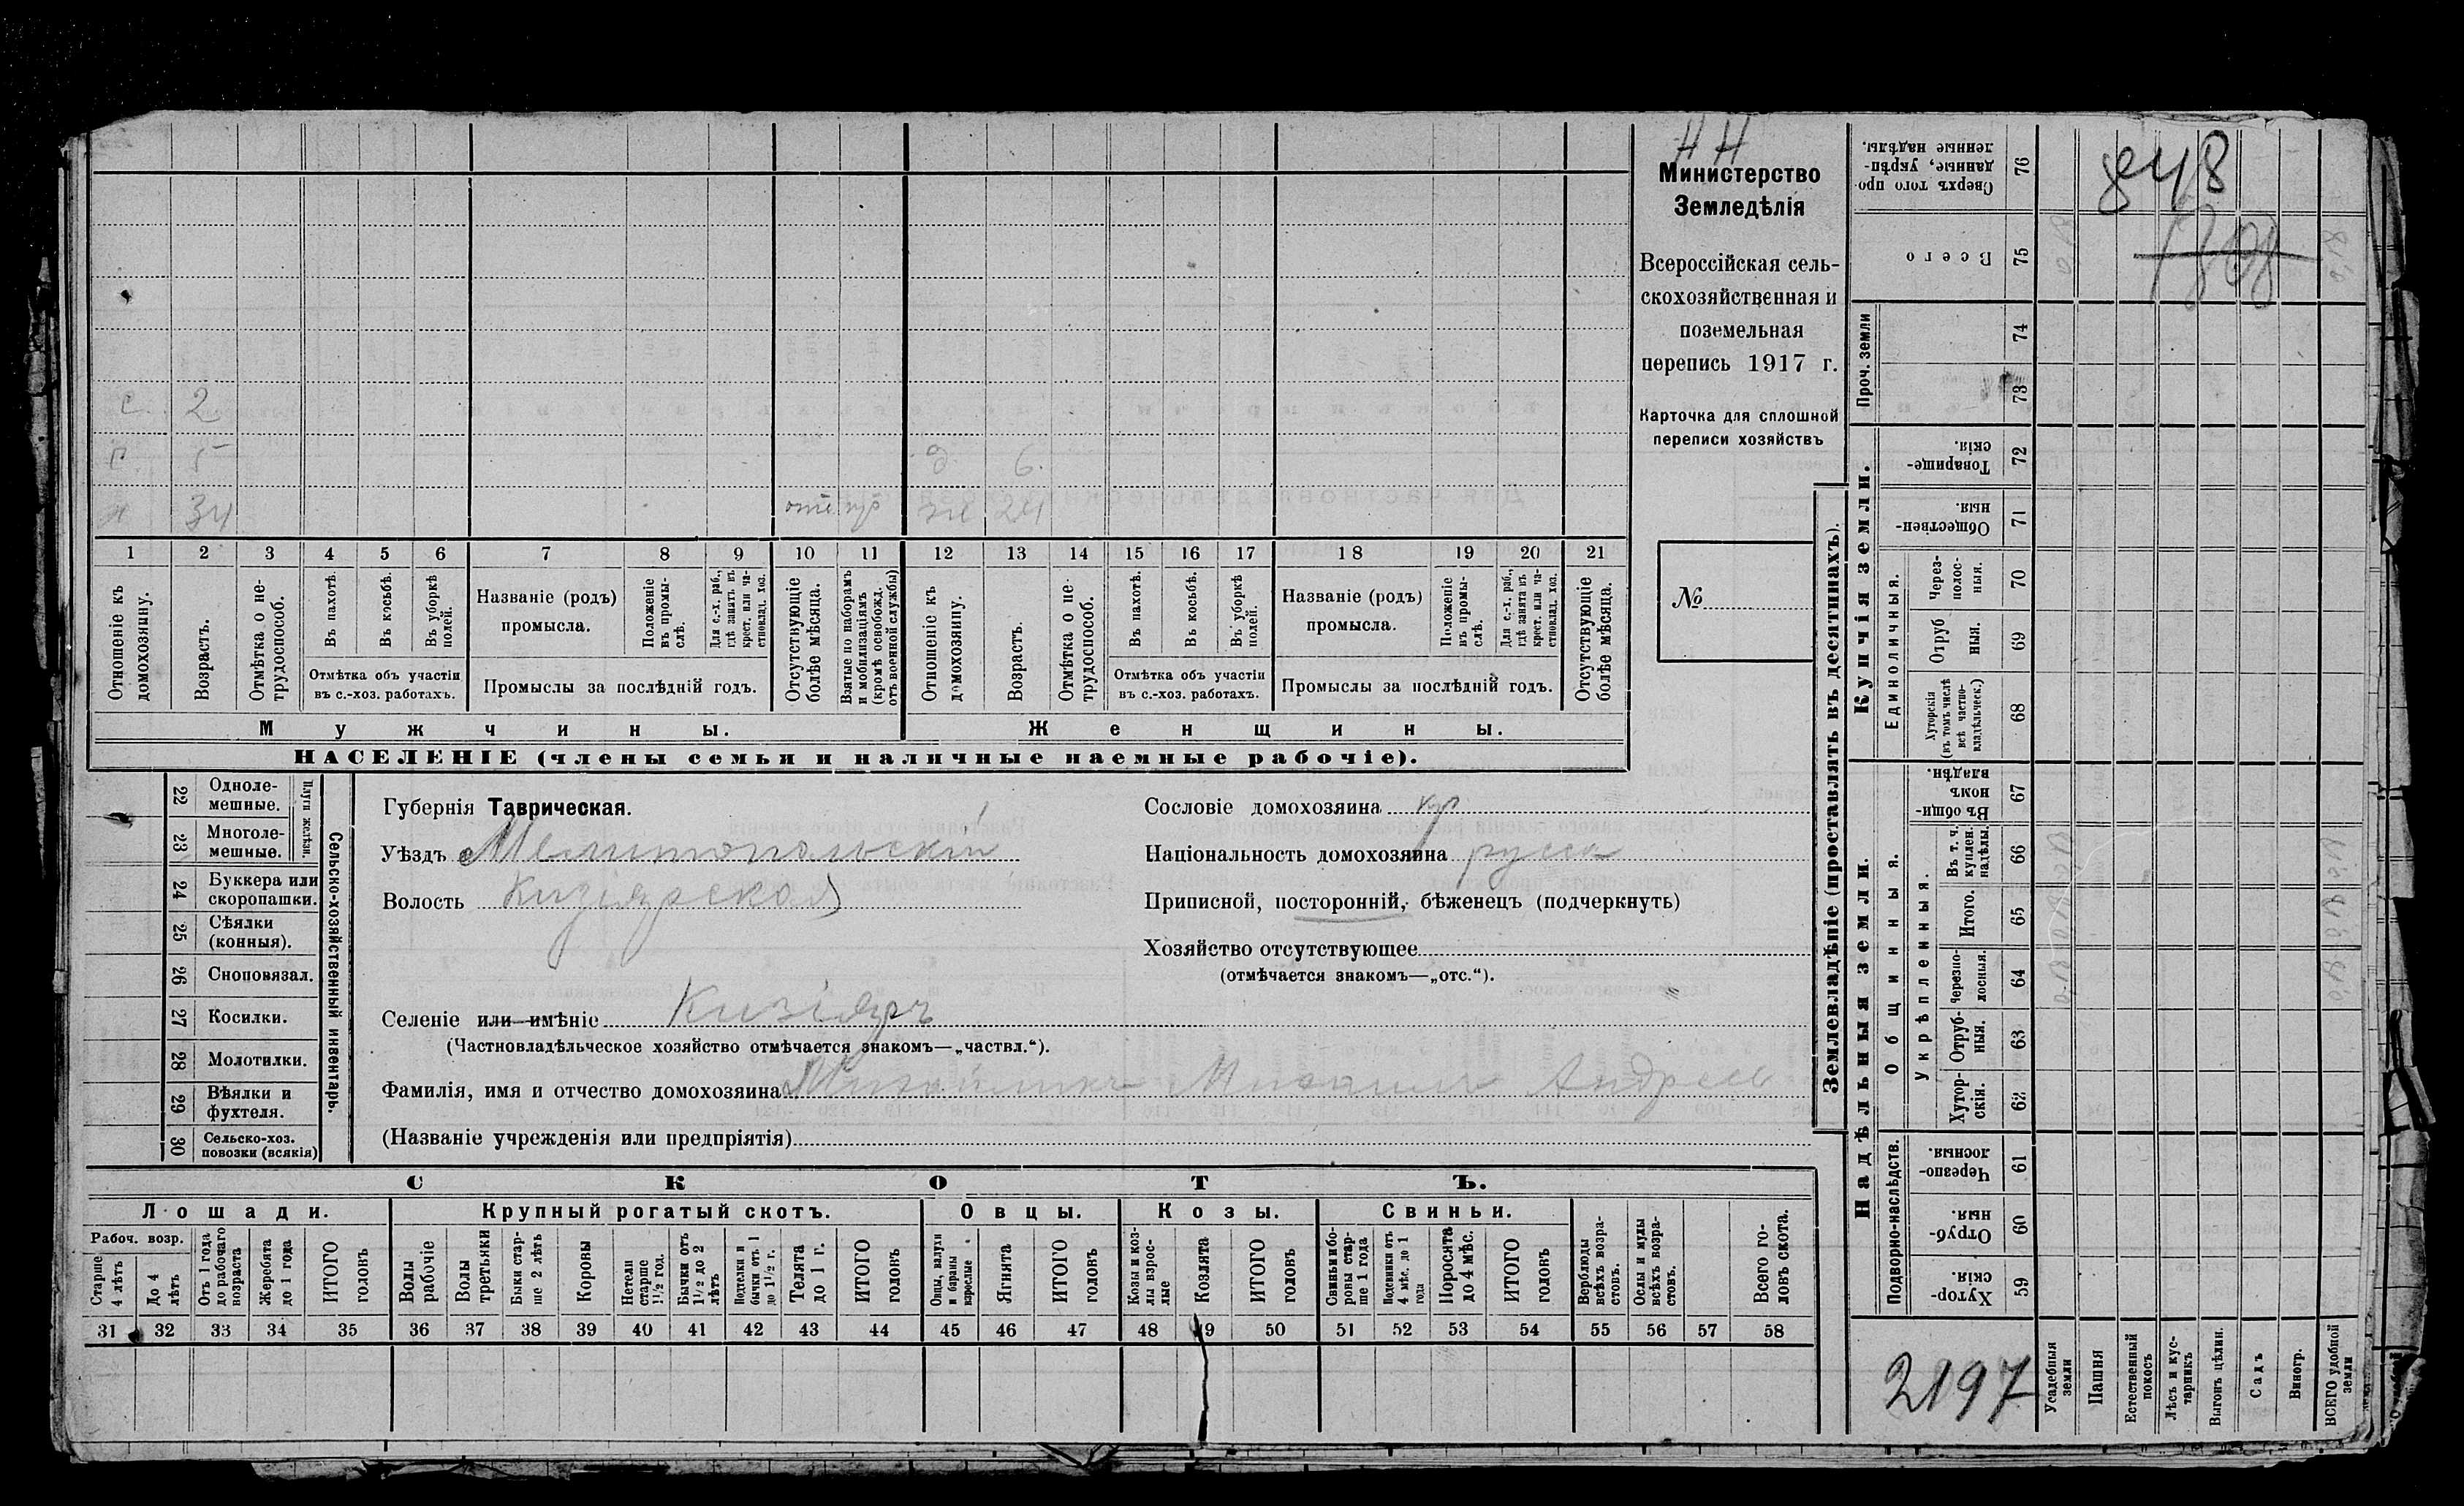 НН
Министерство
Земледѣлія
Всероссійская сель-
скохозяйственная и
поземельная
перепись 1917 г.
Карточка для сплошной
переписи хозяйствъ
№
с. 2
с. 5 д 6.
х 34 отс нзр же 24
1 2 3 4 5 6 7 8 9 10 11 12 13 14 15 16 17 18 19 20 21
Отношеніе къ домохозяину.
Возрастъ.
Отмѣтка о не-трудоспособ.
Въ пахотѣ.
Въ косьбѣ.
Въ уборкѣ полей.
Отмѣтка объ участіи
въ с.-хоз. работахъ.
Названіе (родъ)
промысла.
Положеніе въ промы-слѣ.
Для с.-х. раб., гдѣ занятъ въ крест. или ча-стновлад. хоз.
Промыслы за послѣдній годъ.
Отсутствующіе болѣе мѣсяца.
Взятые по наборамъ и мобилизаціямъ (кромѣ освобожд. отъ военной службы)
Отношеніе къ домохозяину.
Возрастъ.
Отмѣтка о не-трудоспособ.
Въ пахотѣ.
Въ косьбѣ.
Въ уборкѣ полей.
Отмѣтка объ участіи
въ с.-хоз. работахъ.
Названіе (родъ)
промысла.
Положеніе въ промы-слѣ.
Для с.-х. раб., гдѣ занята въ крест. или ча-стновлад. хоз.
Промыслы за послѣдній годъ.
Отсутствующіе болѣе мѣсяца.
Мужчины.
Женщины.
НАСЕЛЕНІЕ (члены семьи и наличные наемные рабочіе).
22 Одноле-мешные.
23 Многоле-мешные.
Плуги желѣзн.
24 Буккера или скоропашки.
25 Сѣялки (конныя).
26 Сноповязал.
27 Косилки.
28 Молотилки.
29 Вѣялки и фухтеля.
30 Сельско-хоз. повозки (всякія)
Сельско-хозяйственный инвентарь.
Губернія Таврическая.
Уѣздъ Мелитопольскій
Волость Кизіярская
Селеніе или имѣніе Кизіяръ
(Частновладѣльческое хозяйство отмѣчается знакомъ—„частвл.“).
Фамилія, имя и отчество домохозяина Михаилъ Андреев
(Названіе учрежденія или предпріятія)
Сословіе домохозяина кр
Національность домохозяина русск
Приписной, посторонній, бѣженецъ (подчеркнуть)
Хозяйство отсутствующее
(отмѣчается знакомъ—„отс.“).
СКОТЪ.
Лошади.
Крупный рогатый скотъ.
Овцы.
Козы.
Свиньи.
Рабоч. возр.
Старше 4 лѣтъ
До 4 лѣтъ
Отъ 1 года до рабочаго возраста
Жеребята до 1 года
ИТОГО головъ
Волы рабочіе
Волы третьяки
Быки стар-ше 2 лѣтъ
Коровы
Нетели старше 1½ год.
Бычки отъ 1½ до 2 лѣтъ
Подтелки и бычки отъ 1 до 1½ г.
Телята до 1 г.
ИТОГО головъ
Овцы, валухи и бараны взрослые
Ягнята
ИТОГО головъ
Козы и коз-лы взрос-лые
Козлята
ИТОГО головъ
Свиньи и бо-ровы стар-ше 1 года
Подсвинки отъ 4 мѣс. до 1 года
Поросята до 4 мѣс.
ИТОГО головъ
Верблюды всѣхъ возра-стовъ.
Ослы и мулы всѣхъ возра-стовъ.
Всего го-ловъ скота.
31 32 33 34 35 36 37 38 39 40 41 42 43 44 45 46 47 48 49 50 51 52 53 54 55 56 57 58
Землевладѣніе (проставлять въ десятинахъ).
Сверхъ того про-данные, укрѣп-ленные надѣлы. 76
848
Всего 75
Проч. земли 74
73
Купчія земли.
Товарище-скія. 72
Обществен-ныя. 71
Единоличныя.
Через-полос-ныя. 70
Отруб-ныя. 69
Хуторскія (въ томъ числѣ всѣ частно-владѣльческ.) 68
Надѣльныя земли.
Общинныя.
Въ общи-номъ владѣн. 67
Укрѣпленныя.
Въ т. ч. куплен. надѣлы. 66
Итого. 65
Черезпо-лосныя. 64
Отруб-ныя. 63
Хутор-скія. 62
Подворно-наслѣдств.
Черезпо-лосныя. 61
Отруб-ныя. 60
Хутор-скія. 59
2197
Усадебныя земли
Пашня
Естественный покосъ
Лѣсъ и кус-тарникъ
Выгонъ цѣлин.
Садъ
Виногр.
ВСЕГО удобной земли